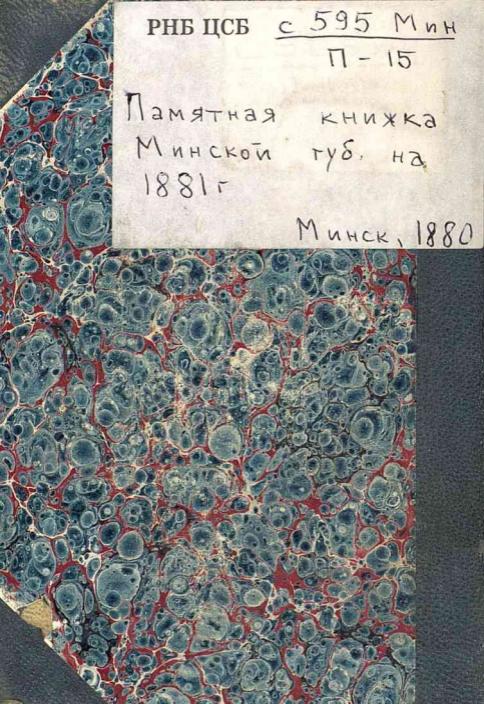 РНБ ЦСБ с 595 Мин
П-15
Памятная книжка
Минской губ. на
1881 г
Минск, 1880